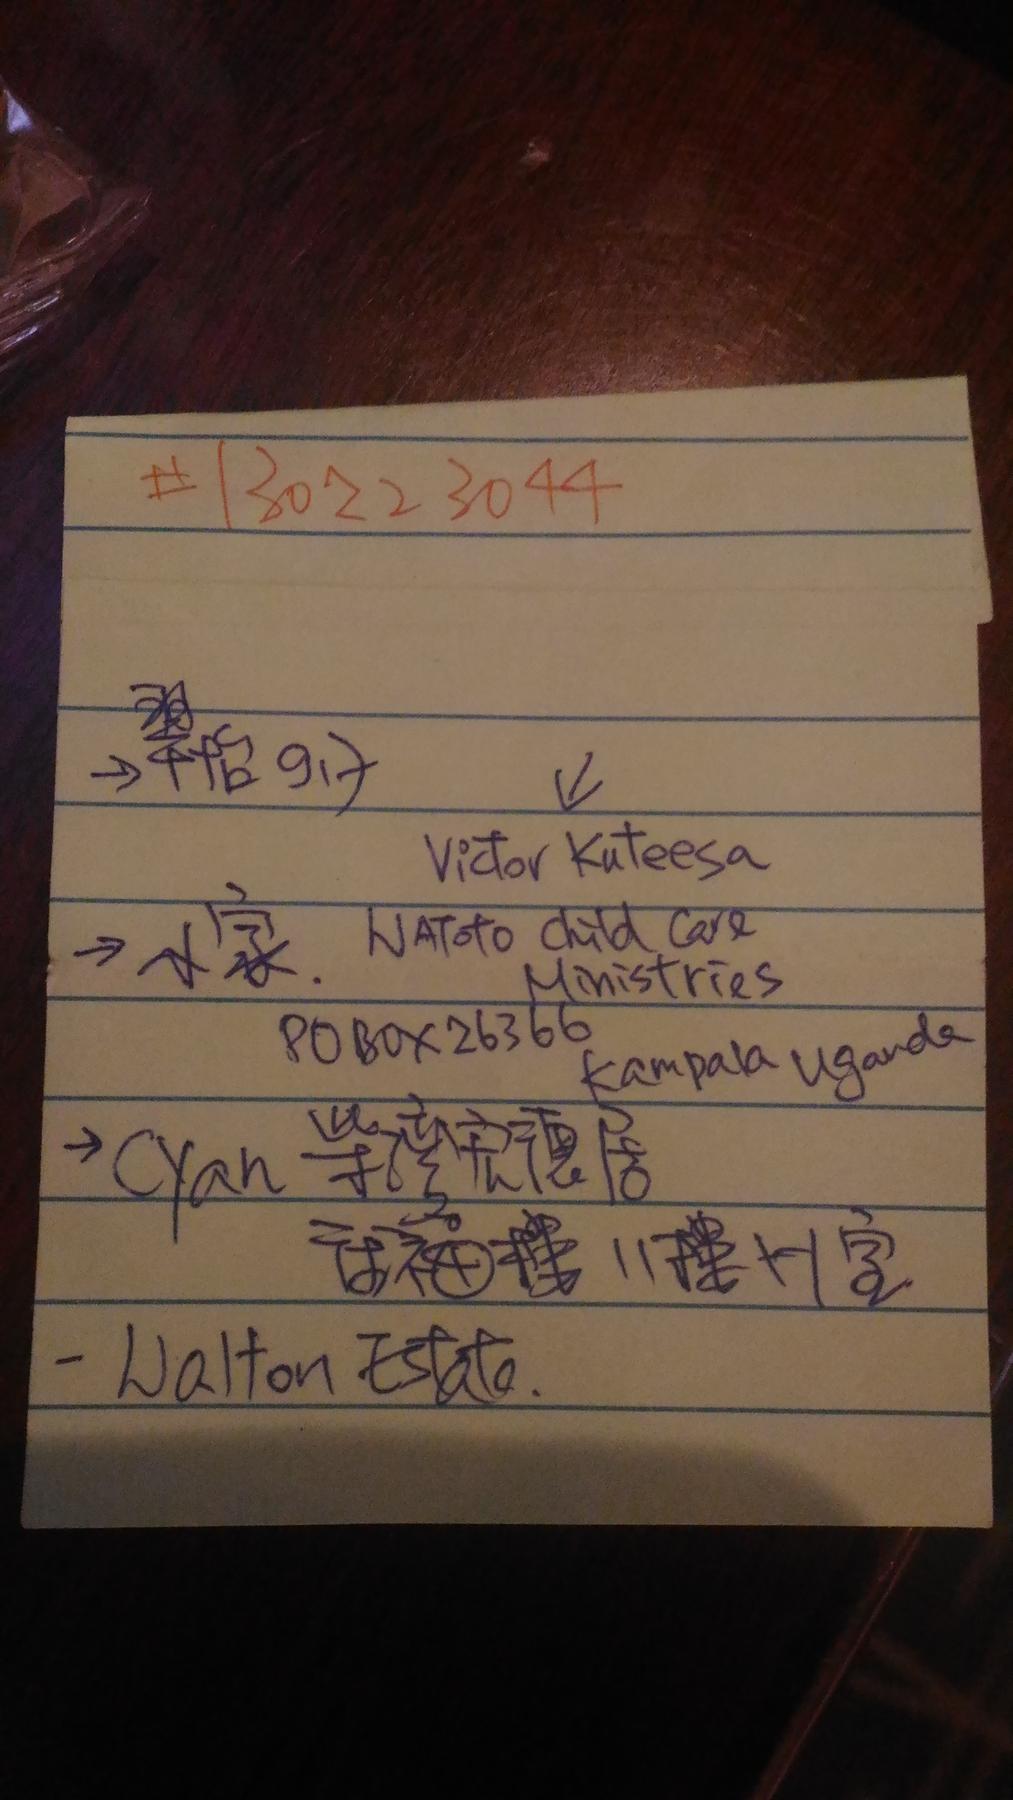 #130223044
Victor Kuteesa
→ 小家. WATOTO Child Care
Ministries
PO BOX 26366
Kampala Uganda
→ Cyan 柴灣宏德居
樓 11樓 H室
- Walton Estate.